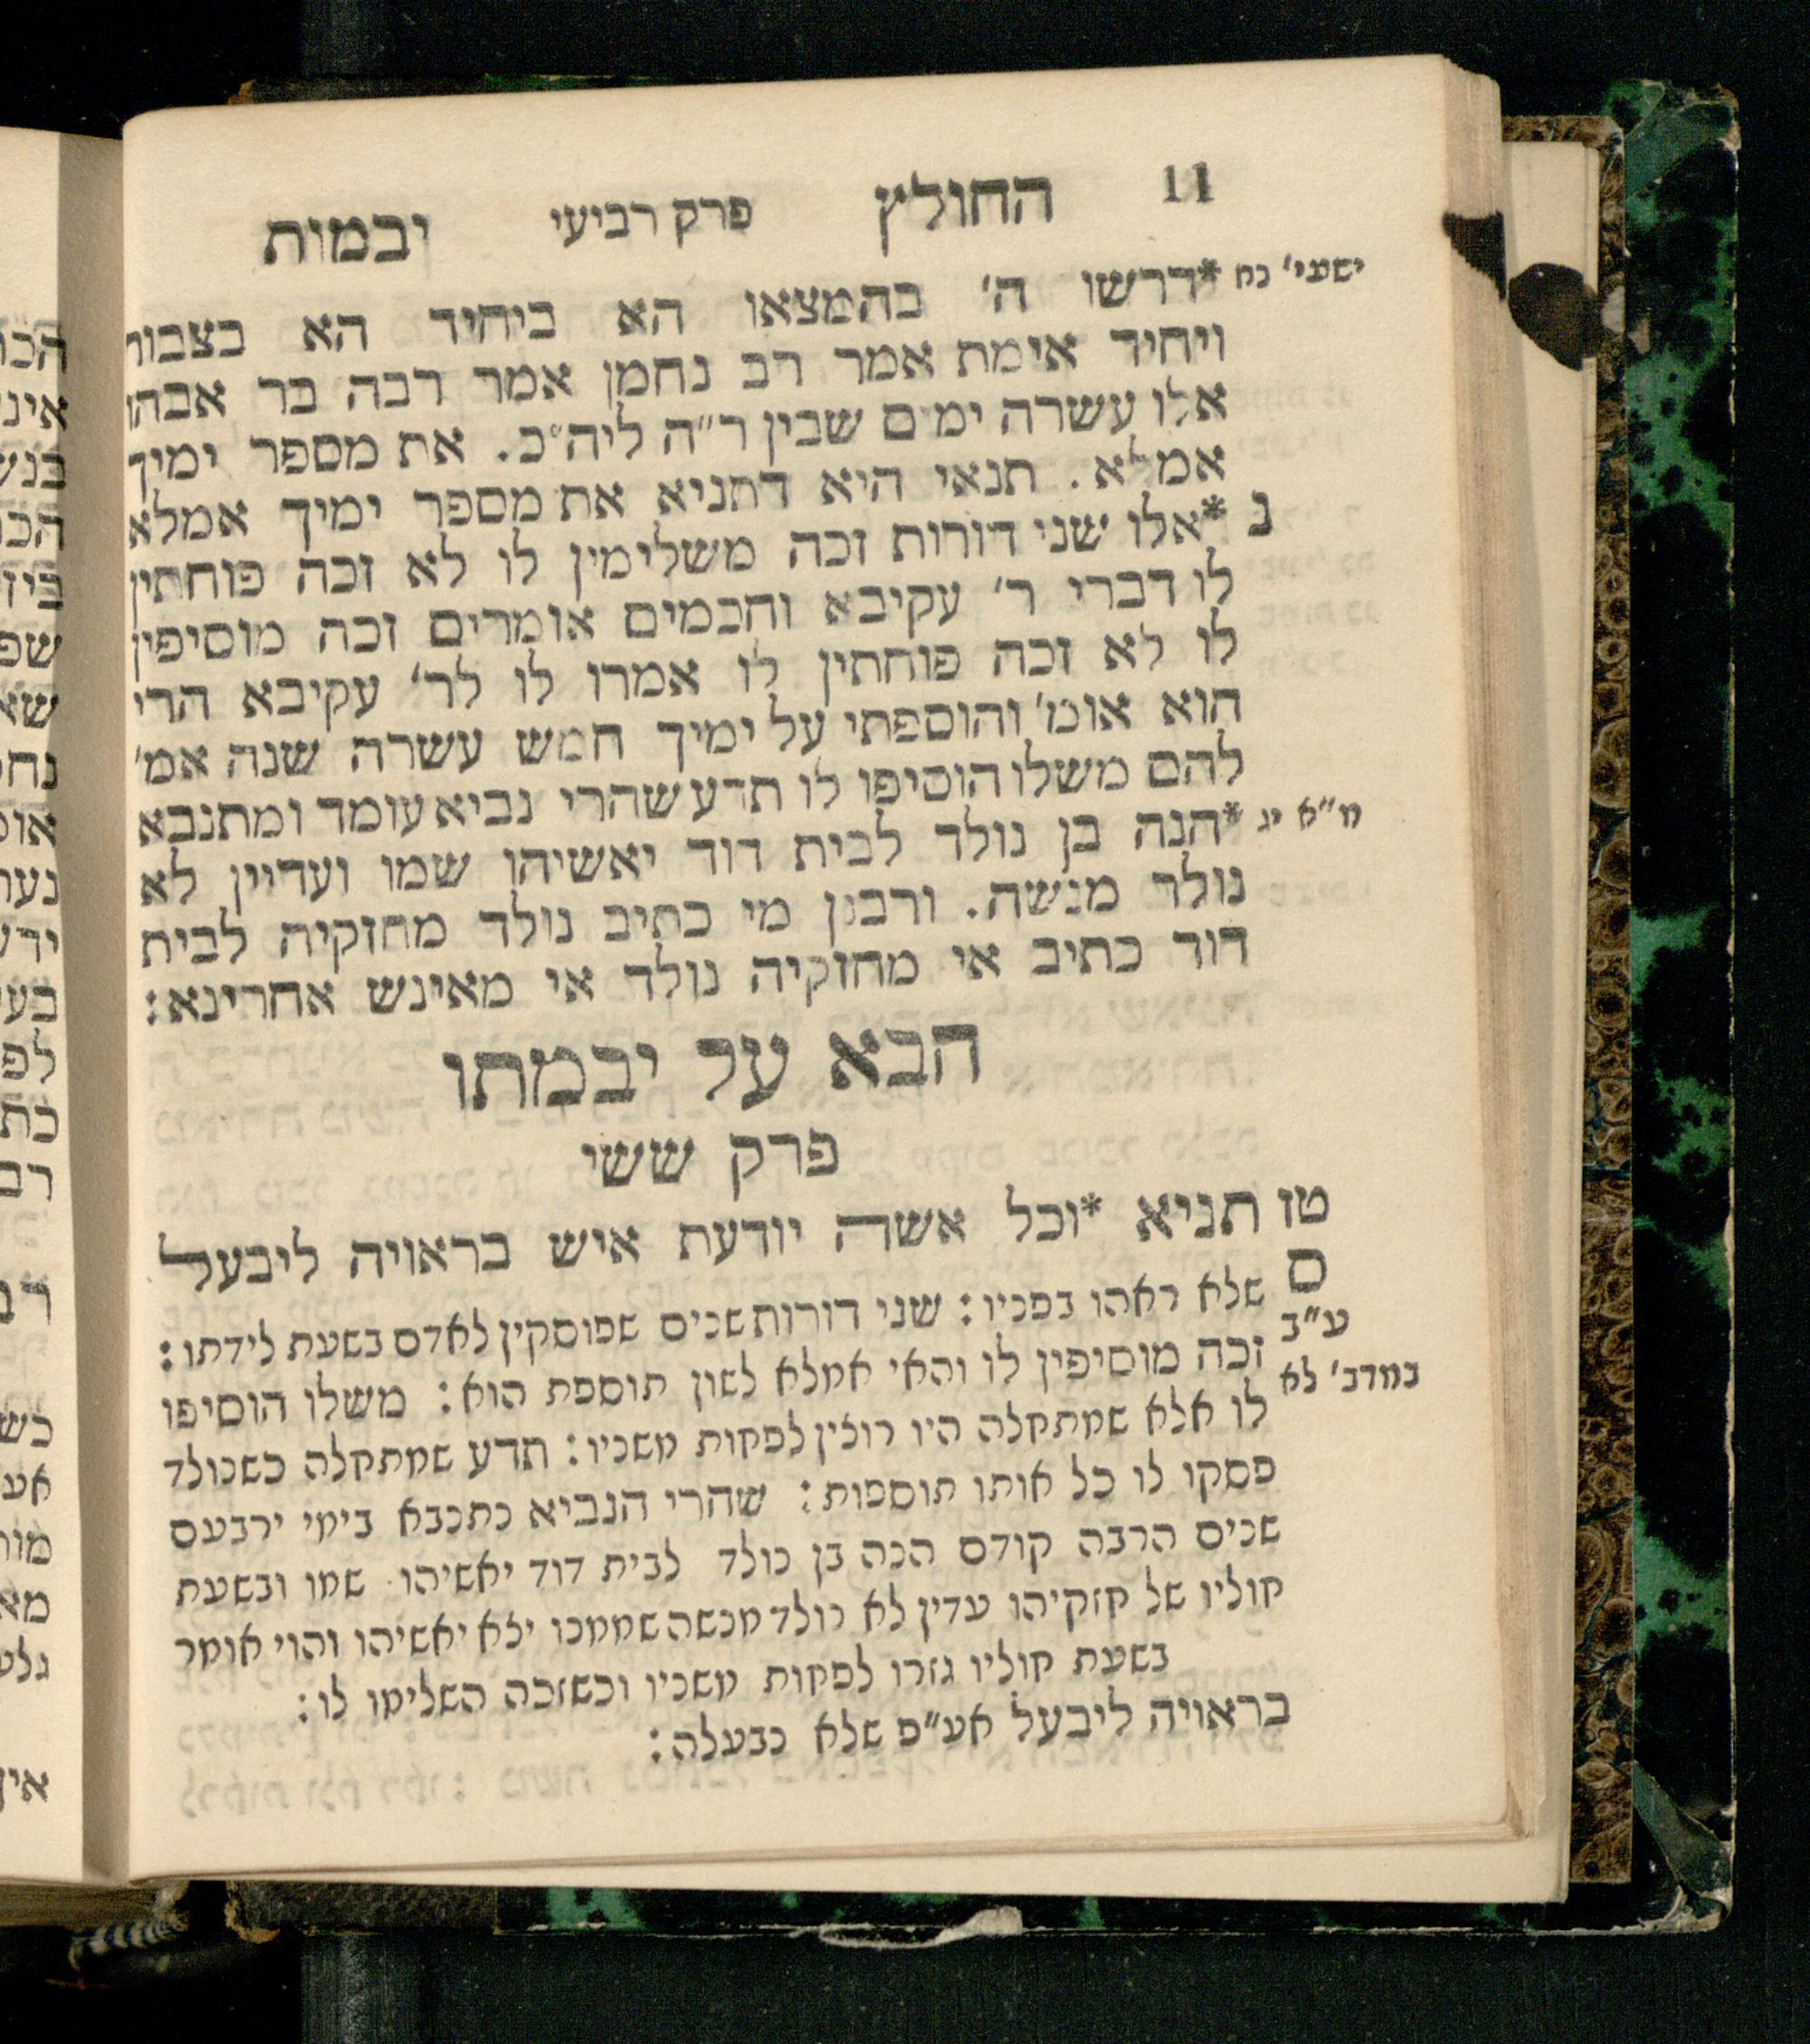 11 החולץ פרק רביעי יבמות
ישעי׳ נה *דרשו ה׳ בהמצאו הא ביחיד הא בצבור
ויחיד אימת אמר רב נחמן אמר רבה בר אבהו
אלו עשרה ימים שבין ר״ה ליה״כ. את מספר ימיך
אמלא. תנאי היא דתניא את מספר ימיך אמלא
נ *אלו שני דורות זכה משלימין לו לא זכה פוחתין
לו דברי ר׳ עקיבא וחכמים אומרים זכה מוסיפין
לו לא זכה פוחתין לו אמרו לו לר׳ עקיבא הרי
הוא אומ׳ והוספתי על ימיך חמש עשרה שנה אמ׳
להם משלו הוסיפו לו תדע שהרי נביא עומד ומתנבא
מ״א יג *הנה בן נולד לבית דוד יאשיהו שמו ועדיין לא
נולד מנשה. ורבנן מי כתיב נולד מחזקיה לבית
דוד כתיב אי מחזקיה נולד אי מאינש אחרינא:
הבא על יבמתו
פרק ששי
טז תניא *וכל אשה יודעת איש בראויה ליבעל
ס
ע״ב
במדב׳ לא
שלא ראהו בפניו: שני דורות שנים שפוסקין לאדם בשעת לידתו:
זכה מוסיפין לו והאי אמלא לשון תוספת הוא: משלו הוסיפו
לו אלא שמתחלה היו רוצין לפחות משניו: תדע שמתחלה כשנולד
פסקו לו כל אותו תוספות: שהרי הנביא נתנבא בימי ירבעם
שנים הרבה קודם הנה בן נולד לבית דוד יאשיהו שמו ובשעת
חוליו של חזקיהו עדין לא נולד מנשה שממנו יצא יאשיהו והוי אומר
בשעת חוליו גזרו לפחות משניו וכשזכה השלימו לו:
בראויה ליבעל אע״פ שלא נבעלה: